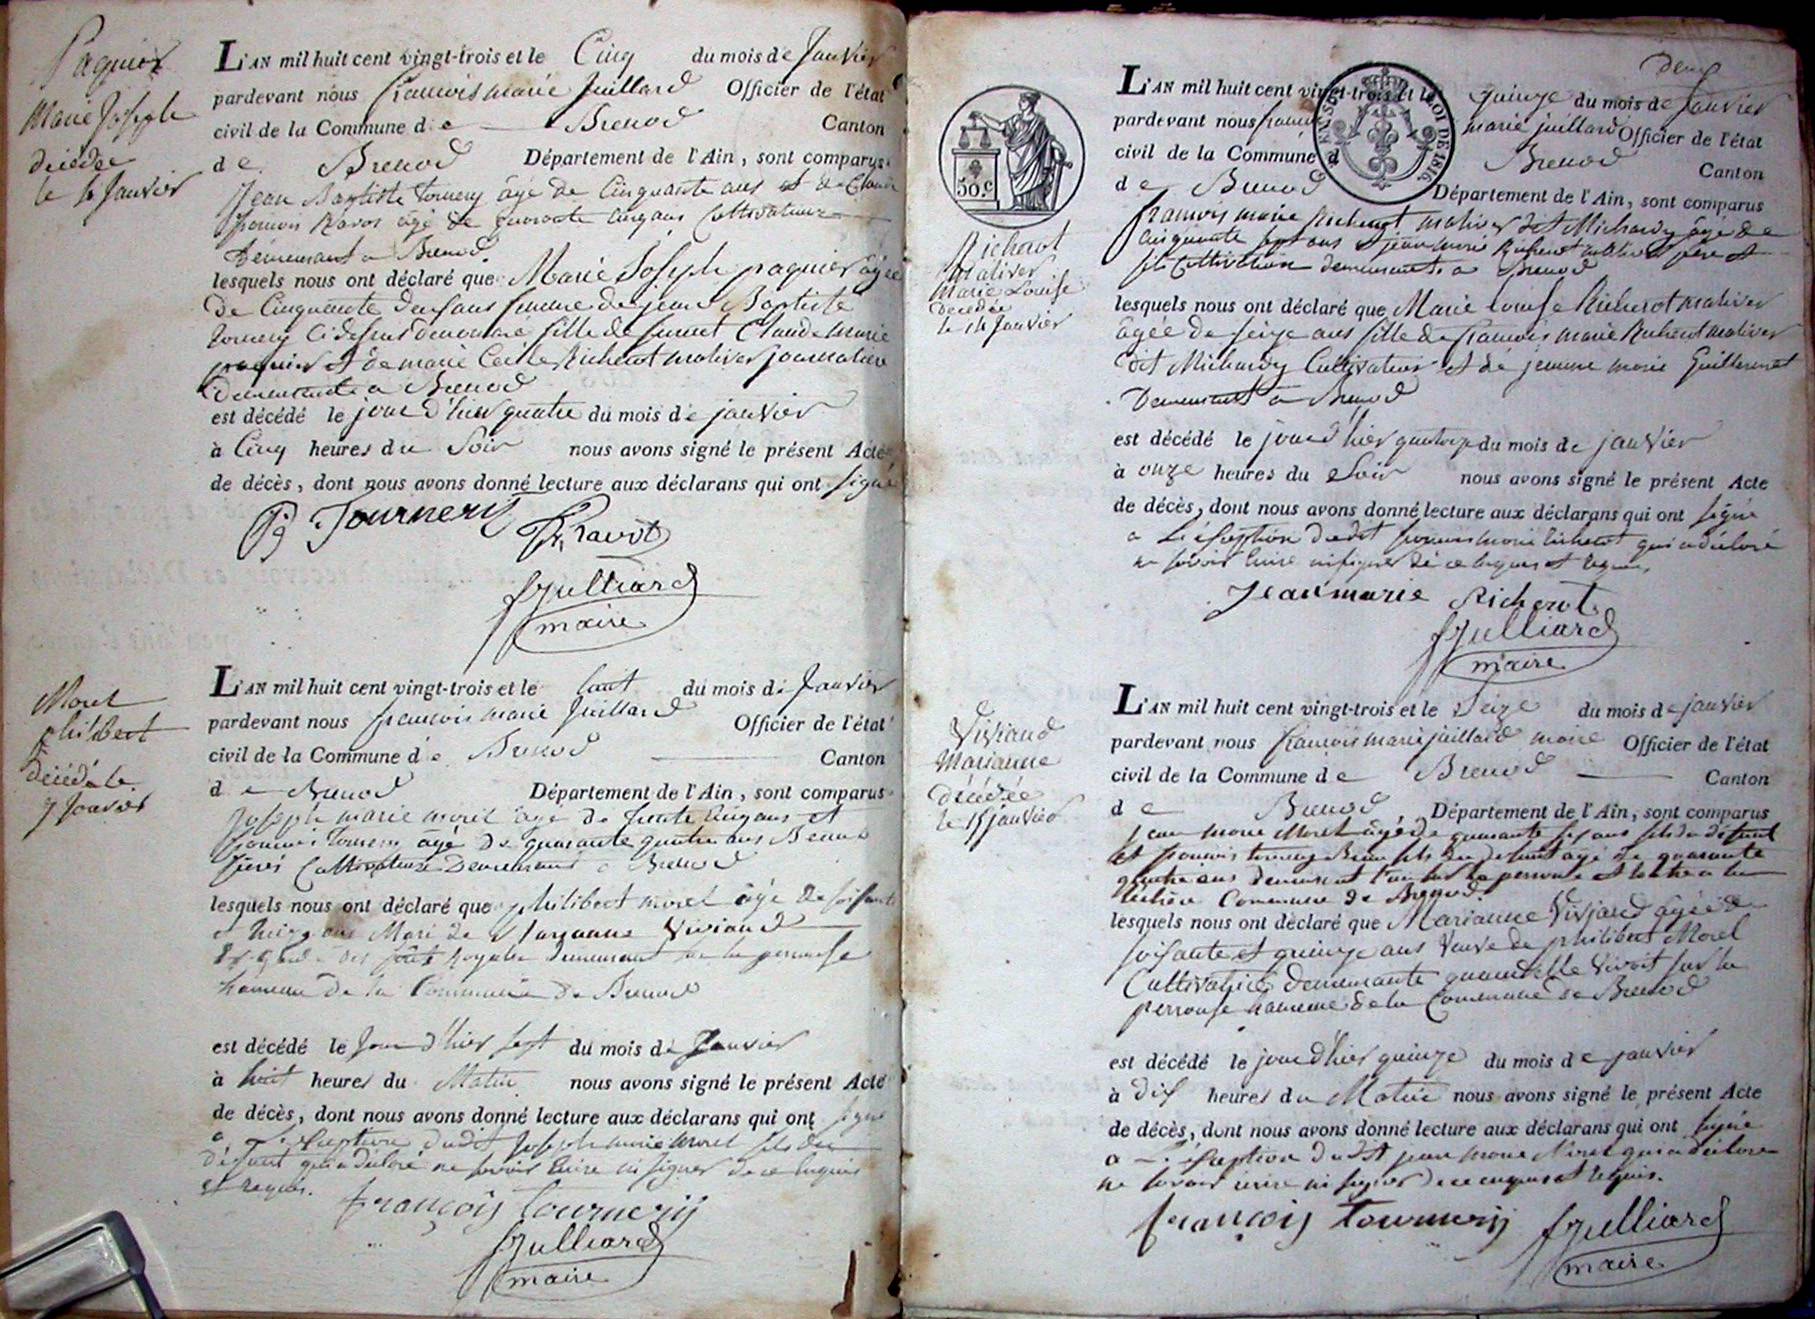 Paquier
Marie Joseph
décédée
le 4 Janvier
L'AN mil huit cent vingt-trois et le Cinq du mois de Janvier
pardevant nous francois marie Juillard Officier de l'état
civil de la Commune de Brenod Canton
de Brenod Département de l'Ain, sont comparus
Jean Baptiste tournery âgé de Cinquante ans et de Claude
francois Ravot âgé de quarante cinq ans Cultivateurs
Demeurant a Brenod.
lesquels nous ont déclaré que Marie Joseph paquier âgée
de Cinquante deux ans femme de jean Baptiste
tournery Cidessus denommé fille de furent Claude marie
paquier et de marie Cécile Richerot maliver journaliere
Demeurante a Brenod
est décédé le jour d'hier quatre du mois de janvier
à Cinq heures du Soir nous avons signé le présent Acte
de décès, dont nous avons donné lecture aux déclarans qui ont signé
Tournery Ravot
fJulliard
maire
Morel
philibert
décédé le
7 Janvier
L'AN mil huit cent vingt-trois et le huit du mois de Janvier
pardevant nous francois marie Juillard Officier de l'état
civil de la Commune de Brenod Canton
de Brenod Département de l'Ain, sont comparus
Joseph marie morel âgé de trente cinq ans et
francois tournery âgé de quarante quatre ans Beaux
freres Cultivateurs Demeurant a Brenod
lesquels nous ont déclaré que philibert morel âgé de soixante
et treize ans Mari de Marianne Viviand
garde des forêts Royales demeurant sur la perrouse
hameau de la Commune de Brenod
est décédé le Jour d'hier sept du mois de Janvier
à huit heures du Matin nous avons signé le présent Acte
de décès, dont nous avons donné lecture aux déclarans qui ont signé
a L'exception dudit Joseph marie morel fils du
défunt qui a déclaré ne savoir écrire ni signer de ce enquis
et requis.
françois tournery
fJulliard
maire
deux
50.c
ROI DE 1816
Richerot
maliver
Marie Louise
Décédée
le 14 Janvier
L'AN mil huit cent vingt-trois et le quinze du mois de Janvier
pardevant nous francois marie juillard Officier de l'état
civil de la Commune de Brenod Canton
de Brenod Département de l'Ain, sont comparus
francois marie Richerot maliver dit Michardy âgé de
cinquante sept ans et jean marie Richerot maliver père et
fils Cultivateurs demeurants a Brenod
lesquels nous ont déclaré que Marie louise Richerot maliver
âgée de seize ans fille de francois marie Richerot maliver
dit Michardy Cultivateur et de jeanne marie Guillermet
Demeurant a Brenod
est décédé le jour d'hier quatorze du mois de janvier
à onze heures du Soir nous avons signé le présent Acte
de décès, dont nous avons donné lecture aux déclarans qui ont signé
a L'exception dudit francois marie richerot qui a déclaré
ne savoir écrire ni signer de ce enquis et requis
Jean marie Richerot
fJulliard
maire
Viviand
Marianne
décédée
le 15 janvier
L'AN mil huit cent vingt-trois et le Seize du mois de janvier
pardevant nous francois marie juillard maire Officier de l'état
civil de la Commune de Brenod Canton
de Brenod Département de l'Ain, sont comparus
jean marie Morel âgé de quarante six ans fils du défunt
et francois tournery Beau fils du defunt âgé de quarante
quatre ans demeurant l'un sur la perrouse et lautre a la
Commune de Brenod.
lesquels nous ont déclaré que Marianne Viviand âgée de
soixante et quinze ans Veuve de philibert Morel
Cultivatrice demeurante quand elle vivoit sur la
perrouse hameau de la Commune de Brenod
est décédé le jour d'hier quinze du mois de janvier
à dix heures du Matin nous avons signé le présent Acte
de décès, dont nous avons donné lecture aux déclarans qui ont signé
a L'exception dudit jean marie Morel qui a déclaré
ne savoir ecrire ni signer de ce enquis et requis.
françois tournery fJulliard
maire